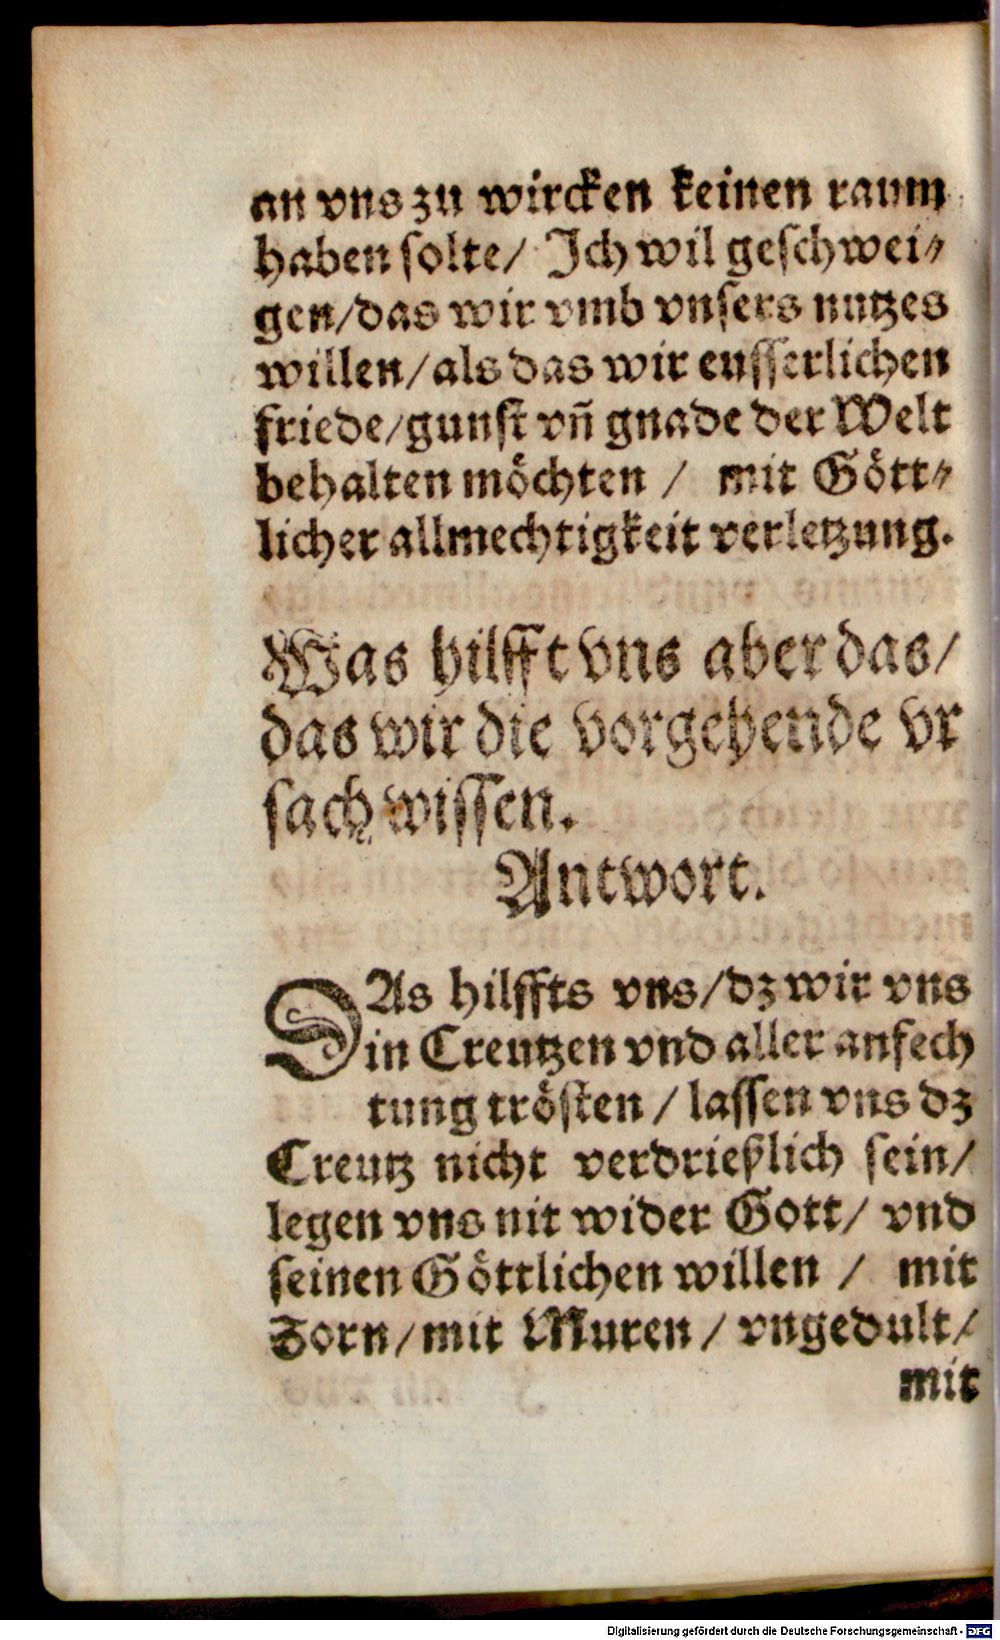 an vns zu wircken keinen raum
haben solte/ Ich wil geschwei⸗
gen/das wir vmb vnsers nutzes
willen/als das wir eusserlichen
friede/gunst vñ gnade der Welt
behalten möchten / mit Gött⸗
licher allmechtigkeit verletzung.
Was hilfft vns aber das/
das wir die vorgehende vr
sach wissen.
Antwort.
DAs hilffts vns/dz wir vns
in Creutzen vnd aller anfech
tung trösten / lassen vns dz
Creutz nicht verdrießlich sein/
legen vns nit wider Gott/ vnd
seinen Göttlichen willen / mit
Zorn/mit Muren / vngedult/
mit
Digitalisierung gefördert durch die Deutsche Forschungsgemeinschaft - DFG